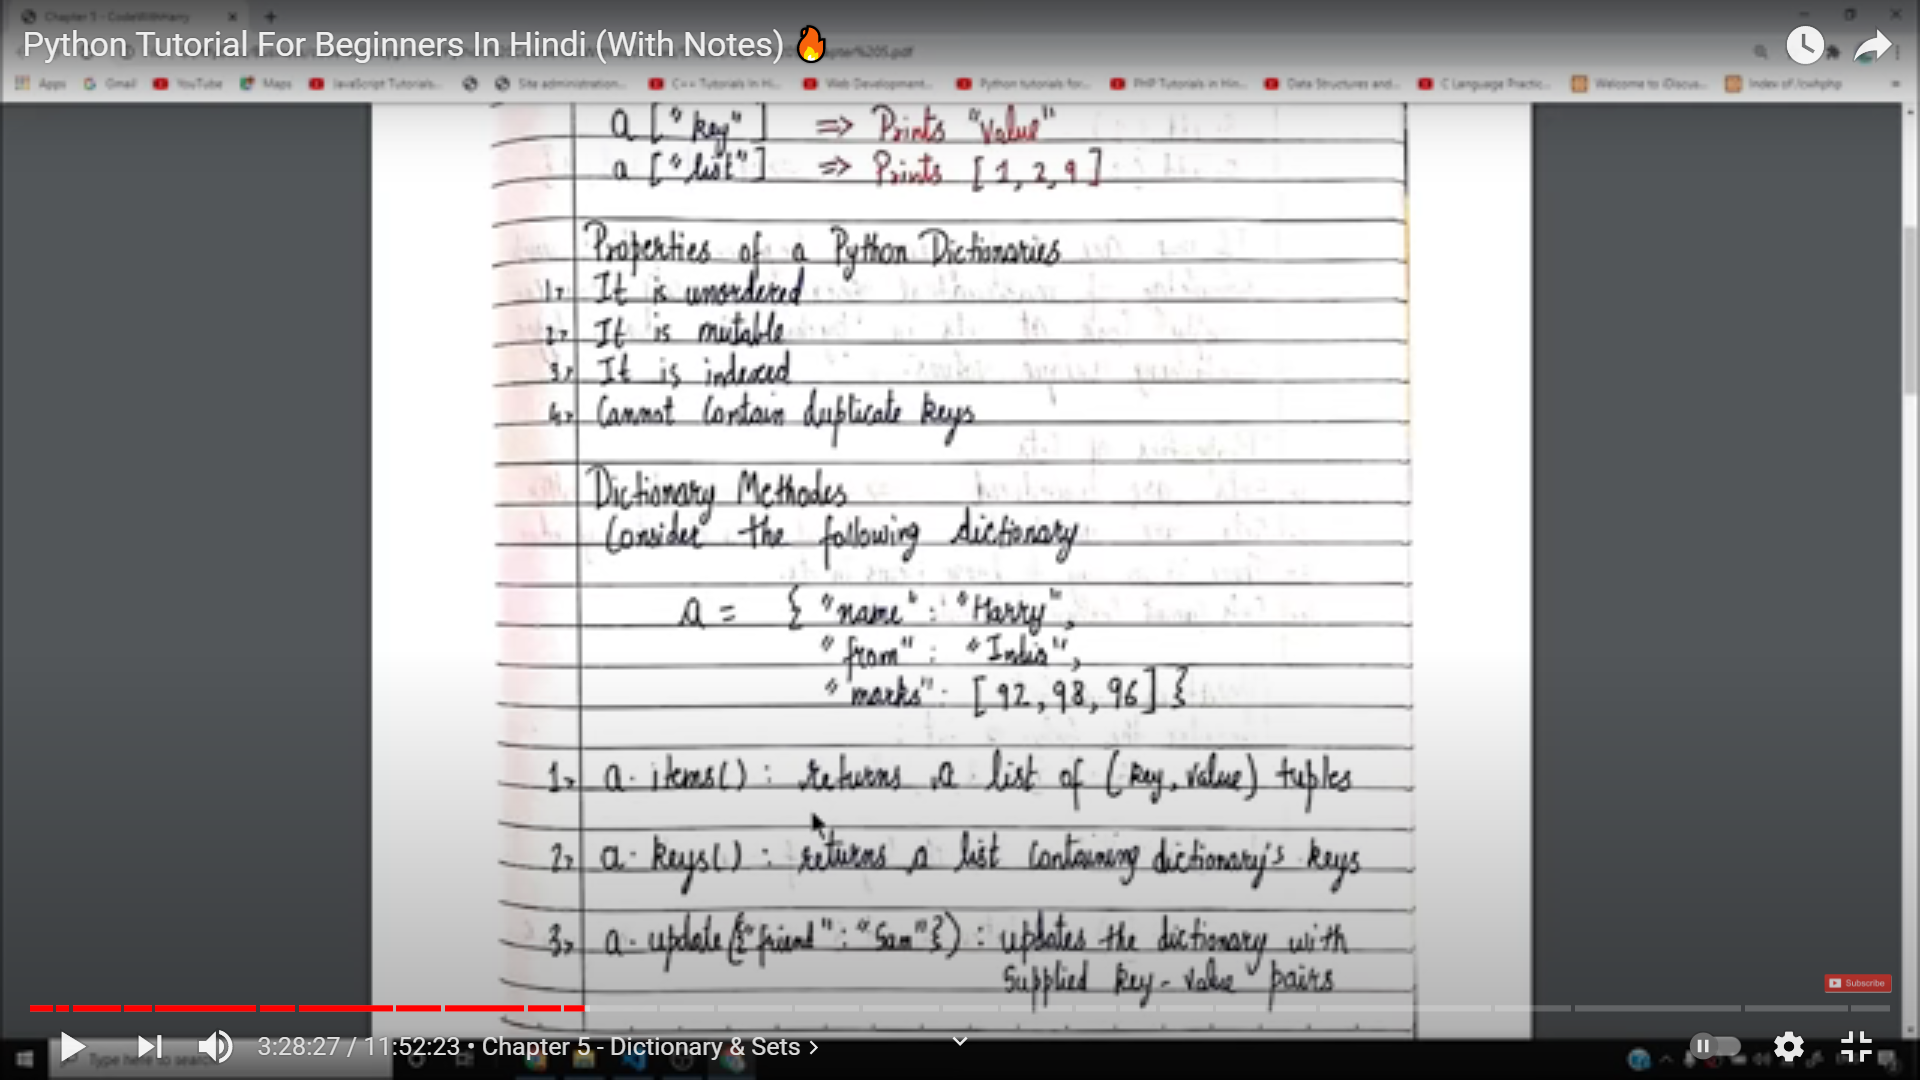 Chapter 5 - CodeWithHarry
Python Tutorial For Beginners In Hindi (With Notes) 🔥
Apps Gmail YouTube Maps JavaScript Tutorials... Site administration... C++ Tutorials In Hi... Web Development... Python tutorials for... PHP Tutorials in Hin... Data Structures and... C Language Practic... Welcome to iDiscu... Index of /cwhphp
a ["key"] => Prints "Value"
a ["list"] => Prints [1, 2, 9]
Properties of a Python Dictionaries
1> It is unordered
2> It is mutable
3> It is indexed
4> Cannot Contain duplicate keys
Dictionary Methodes
Consider the following dictionary
a = { "name" : "Harry",
"from" : "India",
"marks" : [92, 98, 96] }
1> a.items() : returns a list of (key, value) tuples
2> a.keys() : returns a list Containing dictionary's keys
3> a.update({"friend" : "Sam"}) : updates the dictionary with
Supplied key-value pairs
Subscribe
3:28:27 / 11:52:23 • Chapter 5 - Dictionary & Sets >
Type here to search